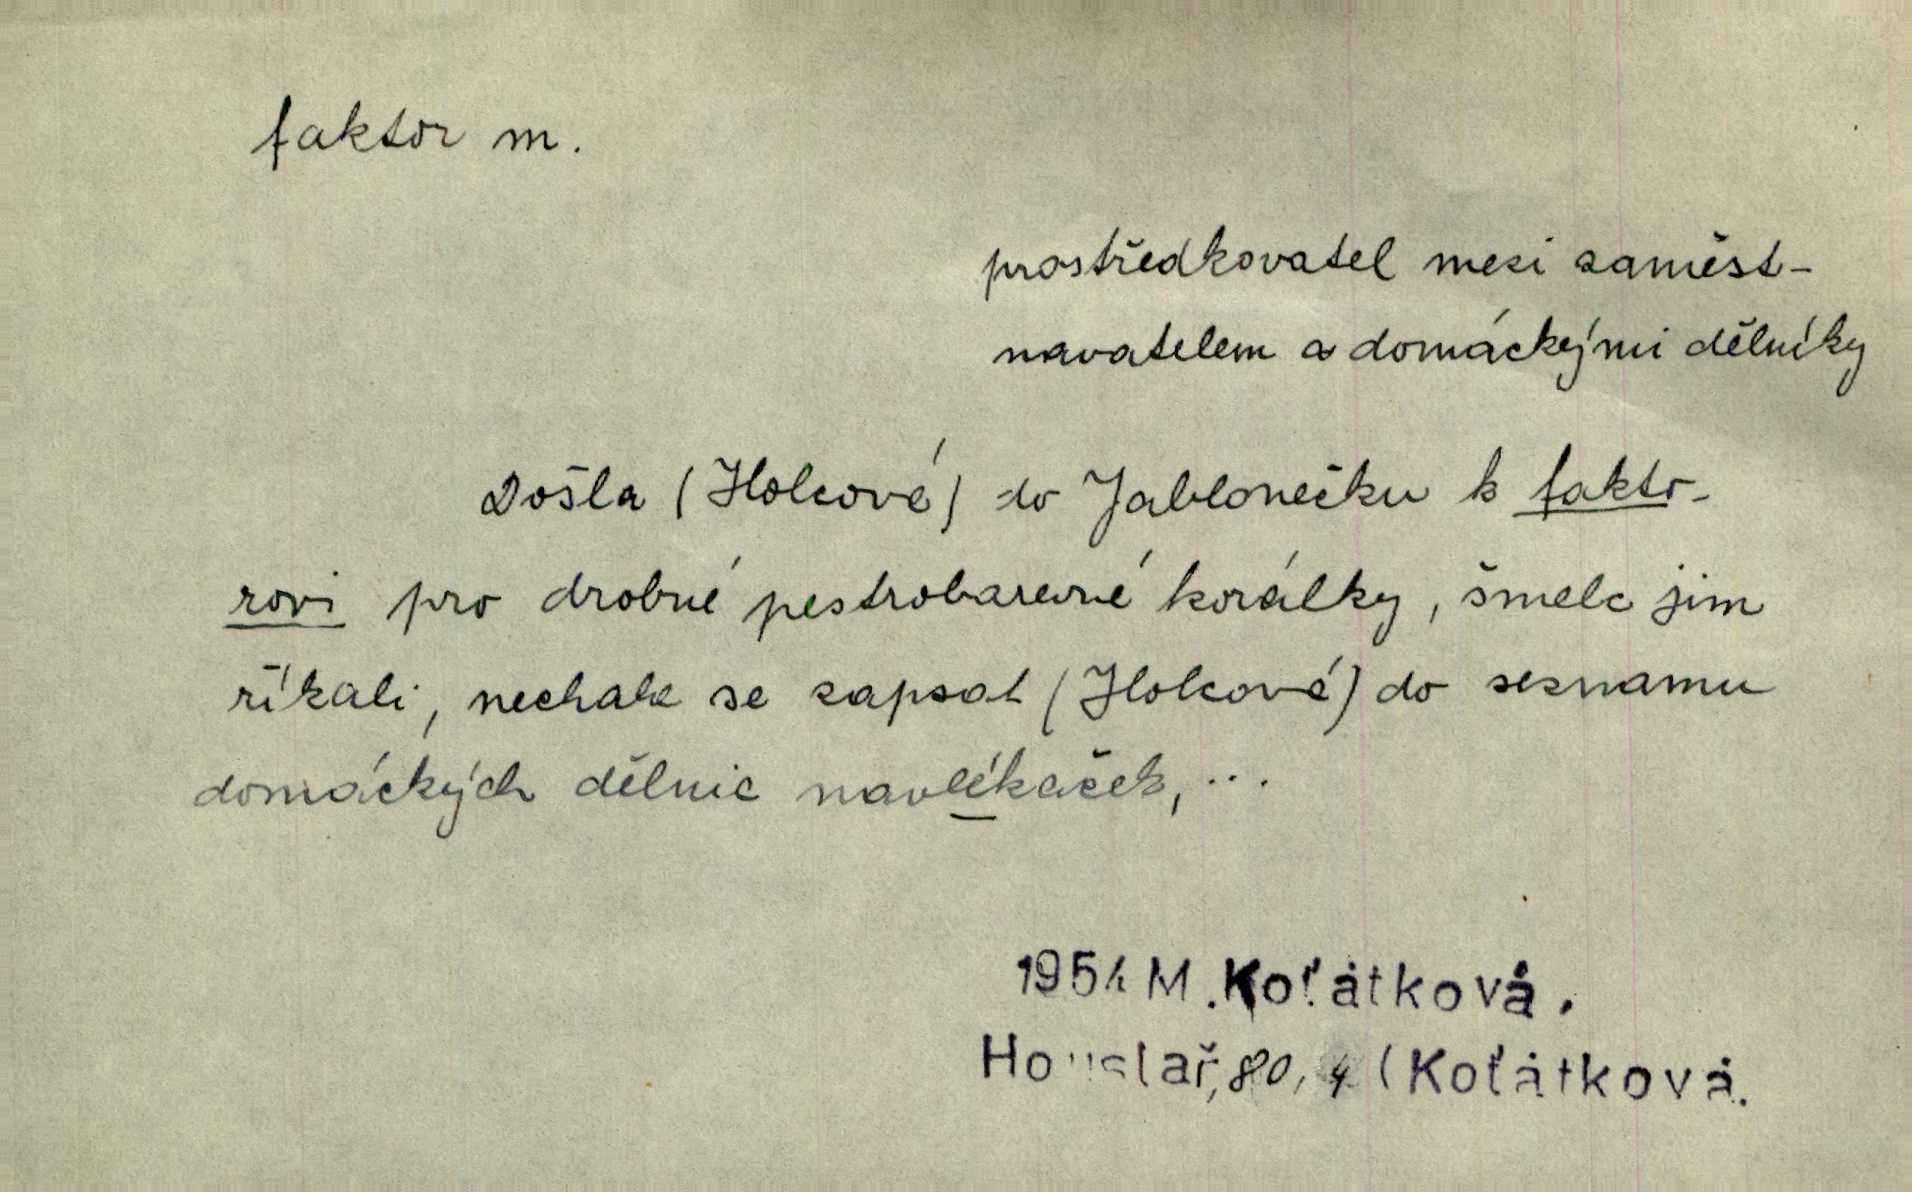 faktor m.
prostředkovatel mezi zaměst-
navatelem a domáckými dělníky
Došla (Holcové) do Jablonečku k fakto-
rovi pro drobné pestrobarevné korálky, šmelc jim
říkali, nechala se zapsat (Holcové) do seznamu
domáckých dělnic navlékaček, ...
1954 M. Koťátková.
Houslař, 80, 4 (Koťátková.